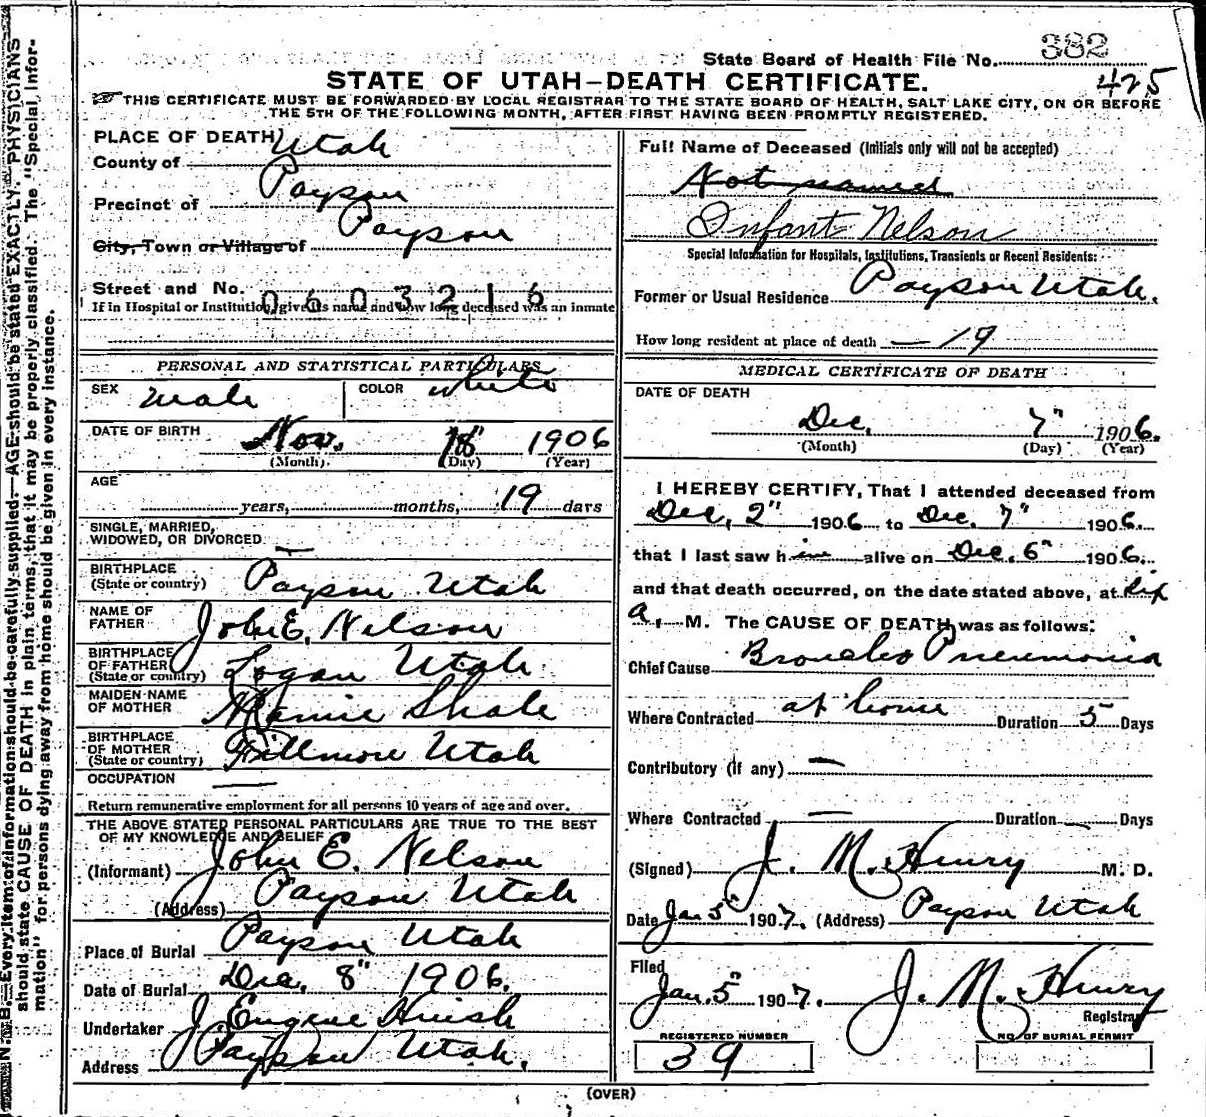 State Board of Health File No. 382
425
STATE OF UTAH—DEATH CERTIFICATE.
THIS CERTIFICATE MUST BE FORWARDED BY LOCAL REGISTRAR TO THE STATE BOARD OF HEALTH, SALT LAKE CITY, ON OR BEFORE
THE 5TH OF THE FOLLOWING MONTH, AFTER FIRST HAVING BEEN PROMPTLY REGISTERED.
PLACE OF DEATH
County of Utah
Precinct of Payson
City, Town or Village of Payson
Street and No.
0603216
If in Hospital or Institution, give its name and how long deceased was an inmate
PERSONAL AND STATISTICAL PARTICULARS
SEX male COLOR white
DATE OF BIRTH Nov. 18" 1906
(Month) (Day) (Year)
AGE
years, months, 19 days
SINGLE, MARRIED,
WIDOWED, OR DIVORCED —
BIRTHPLACE
(State or country) Payson Utah
NAME OF
FATHER John E. Nelson
BIRTHPLACE
OF FATHER
(State or country) Logan Utah
MAIDEN NAME
OF MOTHER Mamie Shale
BIRTHPLACE
OF MOTHER
(State or country) Fillmore Utah
OCCUPATION —
Return remunerative employment for all persons 10 years of age and over.
THE ABOVE STATED PERSONAL PARTICULARS ARE TRUE TO THE BEST
OF MY KNOWLEDGE AND BELIEF
(Informant) John E. Nelson
(Address) Payson Utah
Place of Burial Payson Utah
Date of Burial Dec. 8" 1906.
Undertaker J. Eugene Huish
Address Payson Utah.
Full Name of Deceased (Initials only will not be accepted)
Not named
Infant Nelson
Special Information for Hospitals, Institutions, Transients or Recent Residents:
Former or Usual Residence Payson Utah.
How long resident at place of death — 19
MEDICAL CERTIFICATE OF DEATH
DATE OF DEATH
Dec. 7" 1906.
(Month) (Day) (Year)
I HEREBY CERTIFY, That I attended deceased from
Dec, 2" 1906 to Dec. 7" 1906.
that I last saw him alive on Dec. 6" 1906.
and that death occurred, on the date stated above, at six
a. M. The CAUSE OF DEATH was as follows:
Chief Cause Broncho Pneumonia
Where Contracted at home Duration 5 Days
Contributory (if any) —
Where Contracted — Duration — Days
(Signed) J. M. Henry M. D.
Date Jan 5" 1907. (Address) Payson Utah
Filed
Jan. 5" 1907. J. M. Henry
Registrar
REGISTERED NUMBER NO. OF BURIAL PERMIT
39
(OVER)
N. B.—Every item of information should be carefully supplied. AGE should be stated EXACTLY. PHYSICIANS
should state CAUSE OF DEATH in plain terms, that it may be properly classified. The "Special Infor-
mation" for persons dying away from home should be given in every instance.